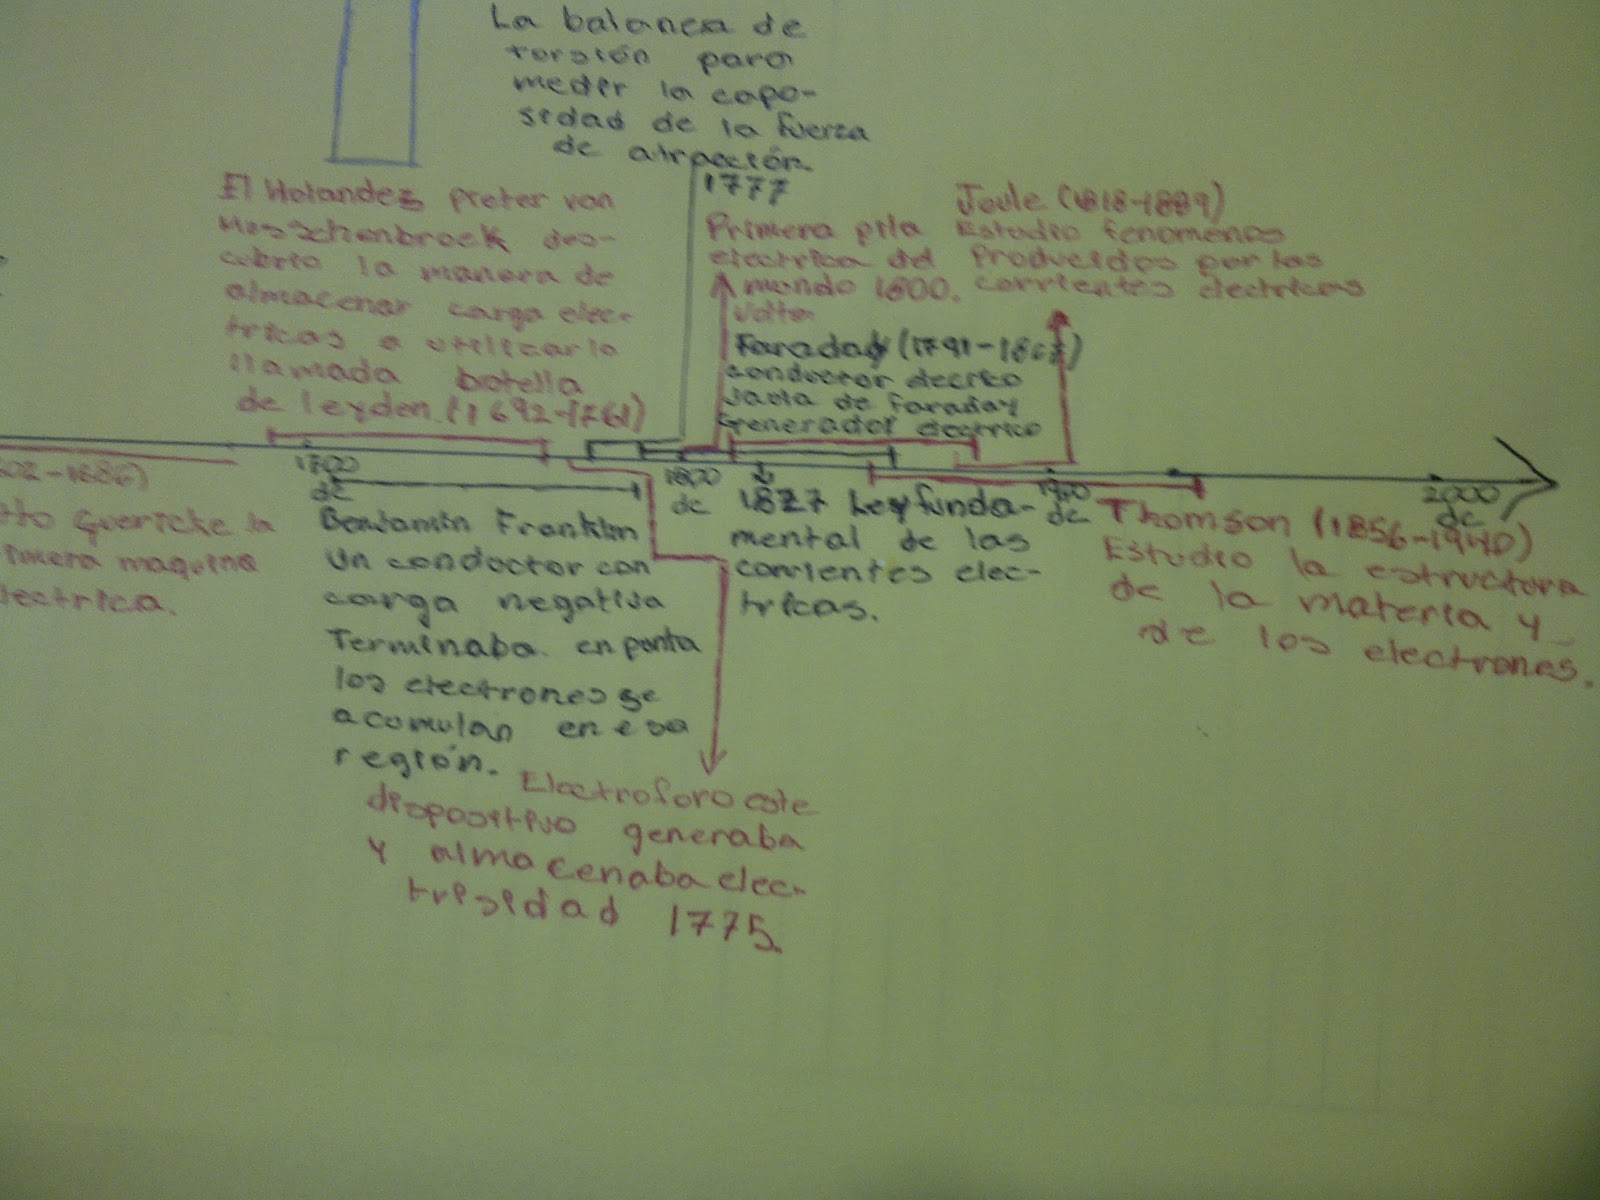 La balanza de
torsión para
meder la capa-
sidad de la fuerza
de atracción.
1777
El Holandez preter van
Musschenbroek des-
cubrio la manera de
almacenar carga elec-
tricas a utilizar la
llamada botella
de leyden. (1692-1761)
Primera pila
electrica del
mundo 1800.
Volta
Joule (1818-1889)
Estudio fenomenos
Producidos por las
corrientes electricas
Faraday (1791-1867)
conductor
Jaula de faraday
Generador electrico
1700
dc
1800
dc
1900
dc
2000
dc
602-1686)
tto Guericke la
rimera maquina
lectrica.
Benjamin Franklin
Un conductor con
carga negativa
Terminaba. en punta
los electrones se
acumulan en esa
región.
1827 Ley funda-
mental de las
corrientes elec-
tricas.
Thomson (1856-1940)
Estudio la estructura
de la materia y
de los electrones.
Electroforo este
dispositivo generaba
y almacenaba elec-
trisidad 1775.